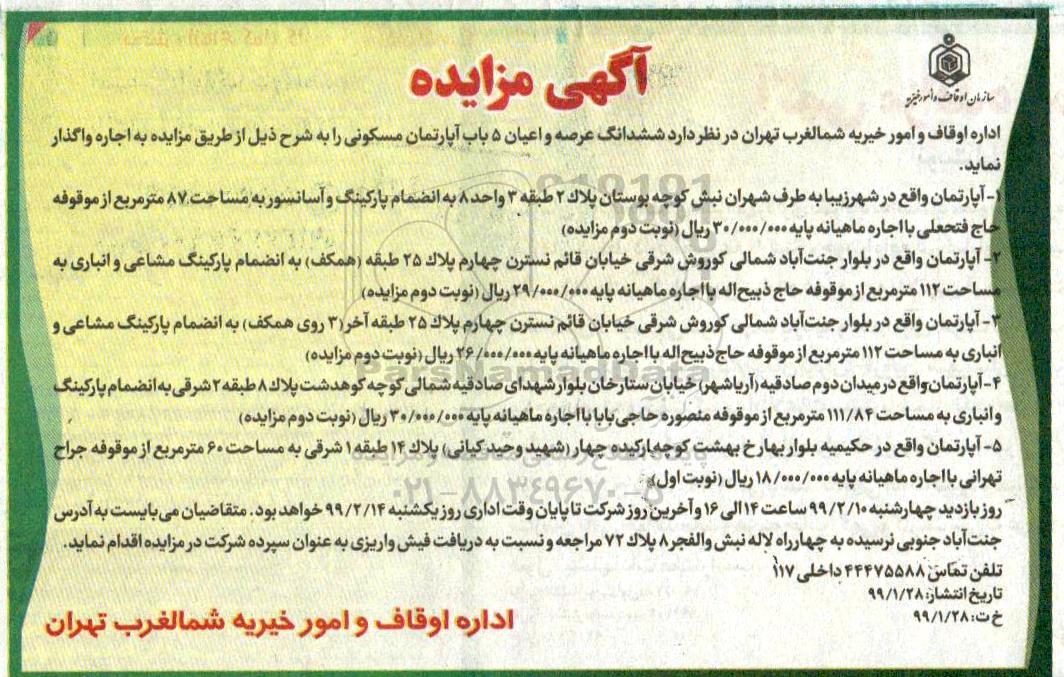 سازمان اوقاف و امور خیریه
آگهی مزایده
اداره اوقاف و امور خیریه شمالغرب تهران در نظر دارد ششدانگ عرصه و اعیان ۵ باب آپارتمان مسکونی را به شرح ذیل از طریق مزایده به اجاره واگذار
نماید.
۱- آپارتمان واقع در شهرزیبا به طرف شهران نبش کوچه بوستان پلاک ۲ طبقه ۳ واحد ۸ به انضمام پارکینگ و آسانسور به مساحت ۸۷ مترمربع از موقوفه
حاج فتحعلی با اجاره ماهیانه پایه ۳۰/۰۰۰/۰۰۰ ریال (نوبت دوم مزایده)
۲- آپارتمان واقع در بلوار جنت‌آباد شمالی کوروش شرقی خیابان قائم نسترن چهارم پلاک ۲۵ طبقه (همکف) به انضمام پارکینگ مشاعی و انباری به
مساحت ۱۱۲ مترمربع از موقوفه حاج ذبیح‌اله با اجاره ماهیانه پایه ۲۹/۰۰۰/۰۰۰ ریال (نوبت دوم مزایده)
۳- آپارتمان واقع در بلوار جنت‌آباد شمالی کوروش شرقی خیابان قائم نسترن چهارم پلاک ۲۵ طبقه آخر (۳ روی همکف) به انضمام پارکینگ مشاعی و
انباری به مساحت ۱۱۲ مترمربع از موقوفه حاج ذبیح‌اله با اجاره ماهیانه پایه ۲۶/۰۰۰/۰۰۰ ریال (نوبت دوم مزایده)
۴- آپارتمان واقع در میدان دوم صادقیه (آریاشهر) خیابان ستارخان بلوار شهدای صادقیه شمالی کوچه کوهدشت پلاک ۸ طبقه ۲ شرقی به انضمام پارکینگ
و انباری به مساحت ۱۱۱/۸۴ مترمربع از موقوفه منصوره حاجی بابا با اجاره ماهیانه پایه ۳۰/۰۰۰/۰۰۰ ریال (نوبت دوم مزایده)
۵- آپارتمان واقع در حکیمیه بلوار بهار خ بهشت کوچه ارکیده چهار (شهید وحید کیانی) پلاک ۱۴ طبقه ۱ شرقی به مساحت ۶۰ مترمربع از موقوفه جراح
تهرانی با اجاره ماهیانه پایه ۱۸/۰۰۰/۰۰۰ ریال (نوبت اول)
روز بازدید چهارشنبه ۹۹/۲/۱۰ ساعت ۱۴ الی ۱۶ و آخرین روز شرکت تا پایان وقت اداری روز یکشنبه ۹۹/۲/۱۴ خواهد بود. متقاضیان می‌بایست به آدرس
جنت‌آباد جنوبی نرسیده به چهارراه لاله نبش والفجر ۸ پلاک ۷۲ مراجعه و نسبت به دریافت فیش واریزی به عنوان سپرده شرکت در مزایده اقدام نماید.
تلفن تماس: ۴۴۴۷۵۵۸۸ داخلی ۱۱۷
تاریخ انتشار: ۹۹/۱/۲۸
خ ت: ۹۹/۱/۲۸
اداره اوقاف و امور خیریه شمالغرب تهران
ParsNamadData
۰۲۱-۸۸۳۴۹۶۷۰-۵